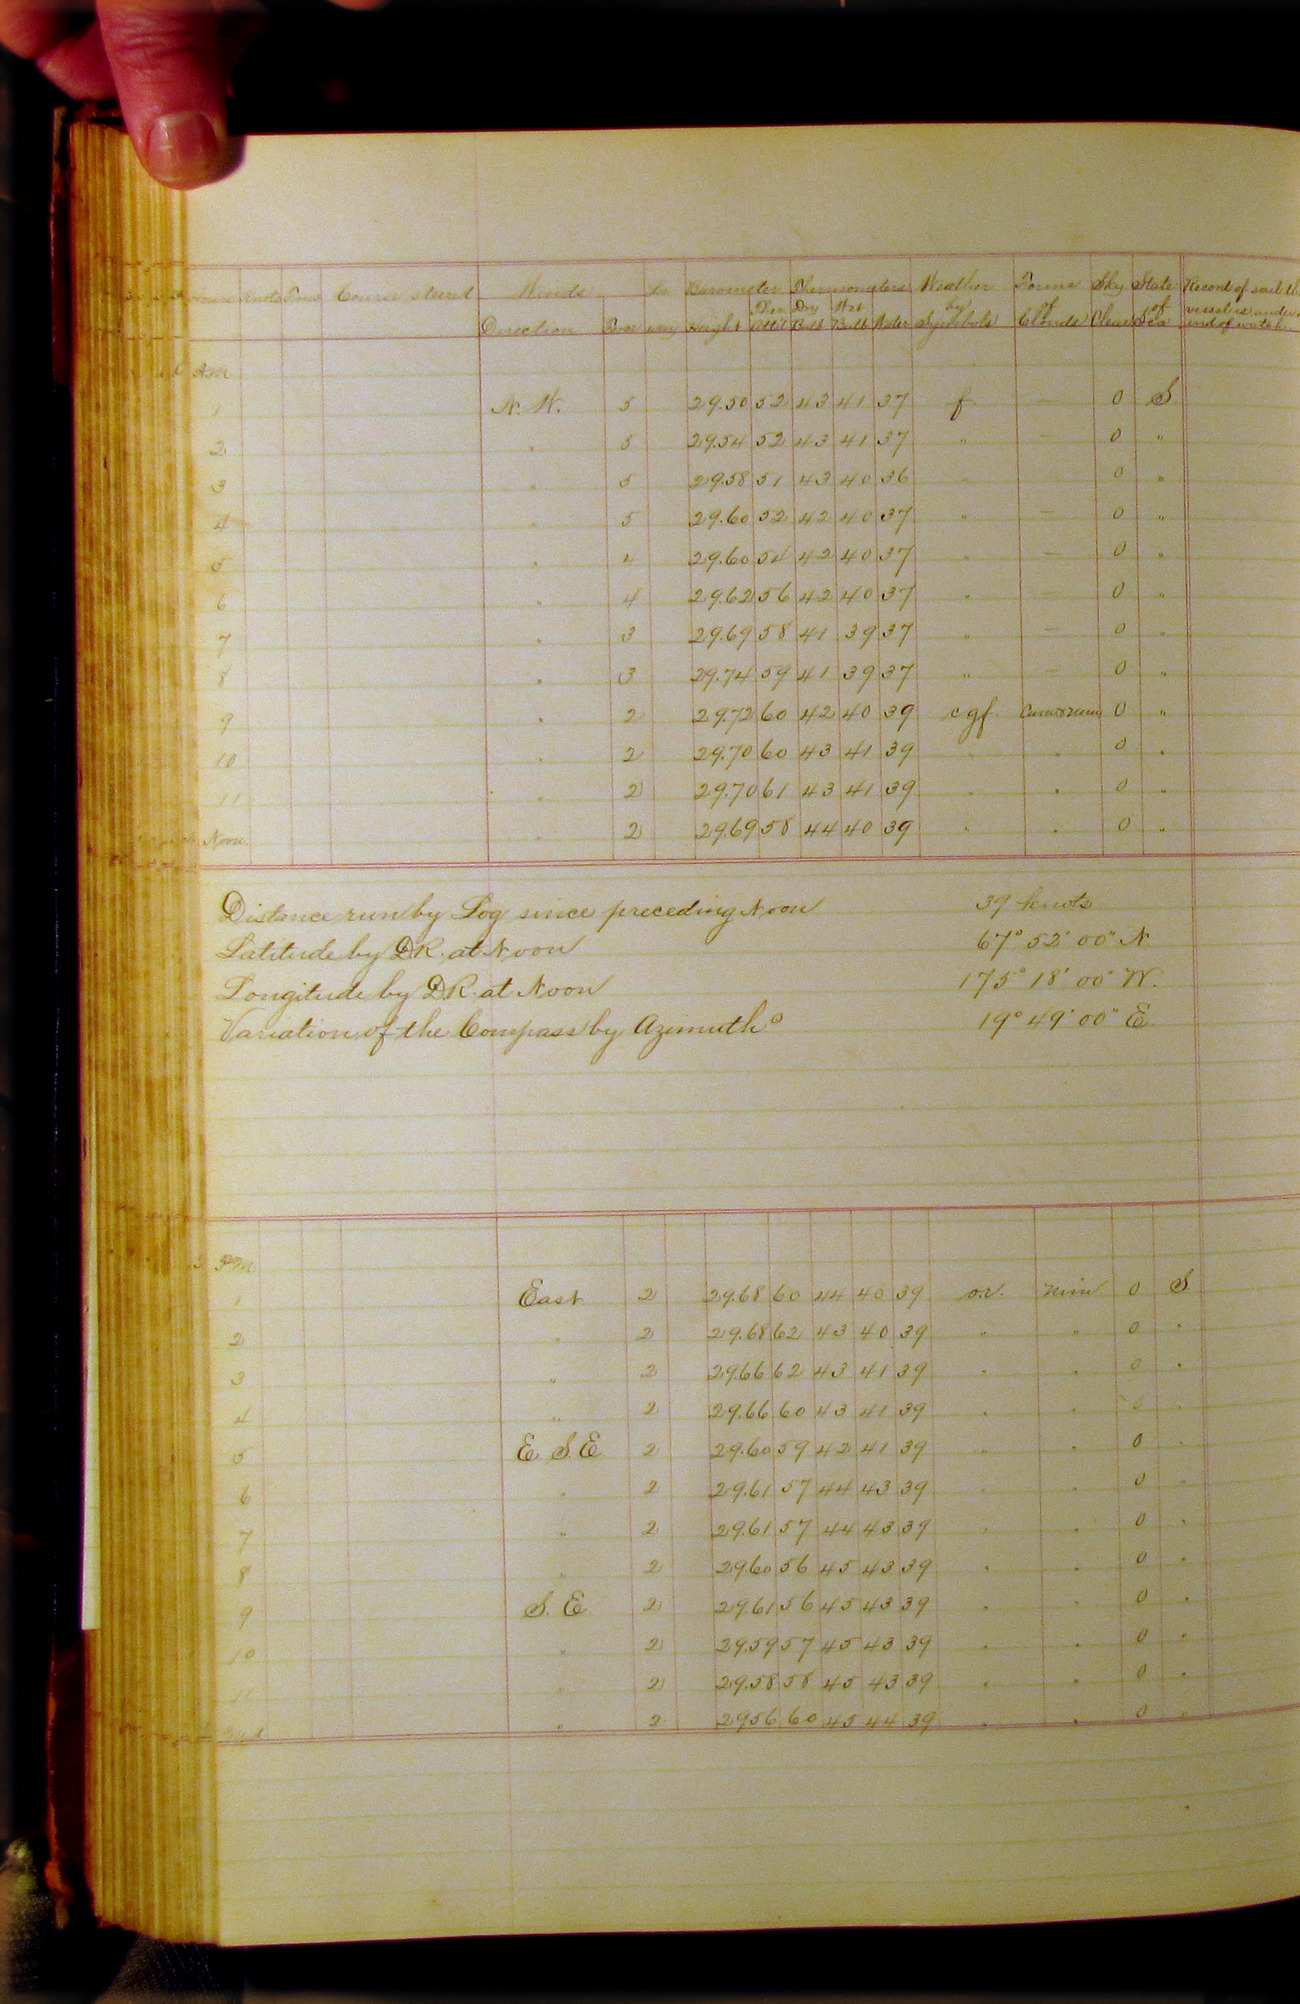 Hours Knots Tens Course steered Winds Le Barometer Thermometers Weather Forms Sky State Record of sail th
Direction Force way Height Ther Att'd Dry Bulb Wet Bulb Water by Symbols of Clouds Clear of Sea vessel is under end of watch
A.M.
1 N. W. 5 29.50 52 43 41 37 f — 0 S
2 " 5 29.54 52 43 41 37 " — 0 "
3 " 5 29.58 51 43 40 36 0 "
4 " 5 29.60 52 42 40 37 " — 0 "
5 " 4 29.60 54 42 40 37 " — 0 "
6 " 4 29.62 56 42 40 37 " — 0 "
7 " 3 29.69 58 41 39 37 " — 0 "
8 " 3 29.74 59 41 39 37 " — 0 "
9 " 2 29.72 60 42 40 39 cgf 0 "
10 " 2 29.70 60 43 41 39 " " 0 "
11 " 2 29.70 61 43 41 39 " " 0 "
Noon " 2 29.69 58 44 40 39 " " 0 "
Distance run by Log since preceding Noon 39 knots
Latitude by D.R. at Noon 67° 52' 00" N
Longitude by D.R. at Noon 175° 18' 00" W.
Variation of the Compass by Azimuth° 19° 49' 00" E.
P.M.
1 East 2 29.68 60 44 40 39 o.v. Nim 0 S
2 " 2 29.68 62 43 40 39 " " 0 "
3 " 2 29.66 62 43 41 39 " " 0 "
4 " 2 29.66 60 43 41 39 " " 0 "
5 E. S. E 2 29.60 59 42 41 39 " " 0 "
6 " 2 29.61 57 44 43 39 " " 0 "
7 " 2 29.61 57 44 43 39 " " 0 "
8 " 2 29.60 56 45 43 39 " " 0 "
9 S. E 2 29.61 56 45 43 39 " " 0 "
10 " 2 29.59 57 45 43 39 " " 0 "
11 " 2 29.58 58 45 43 39 " " 0 "
Mid " 2 29.56 60 45 44 39 " " 0 "